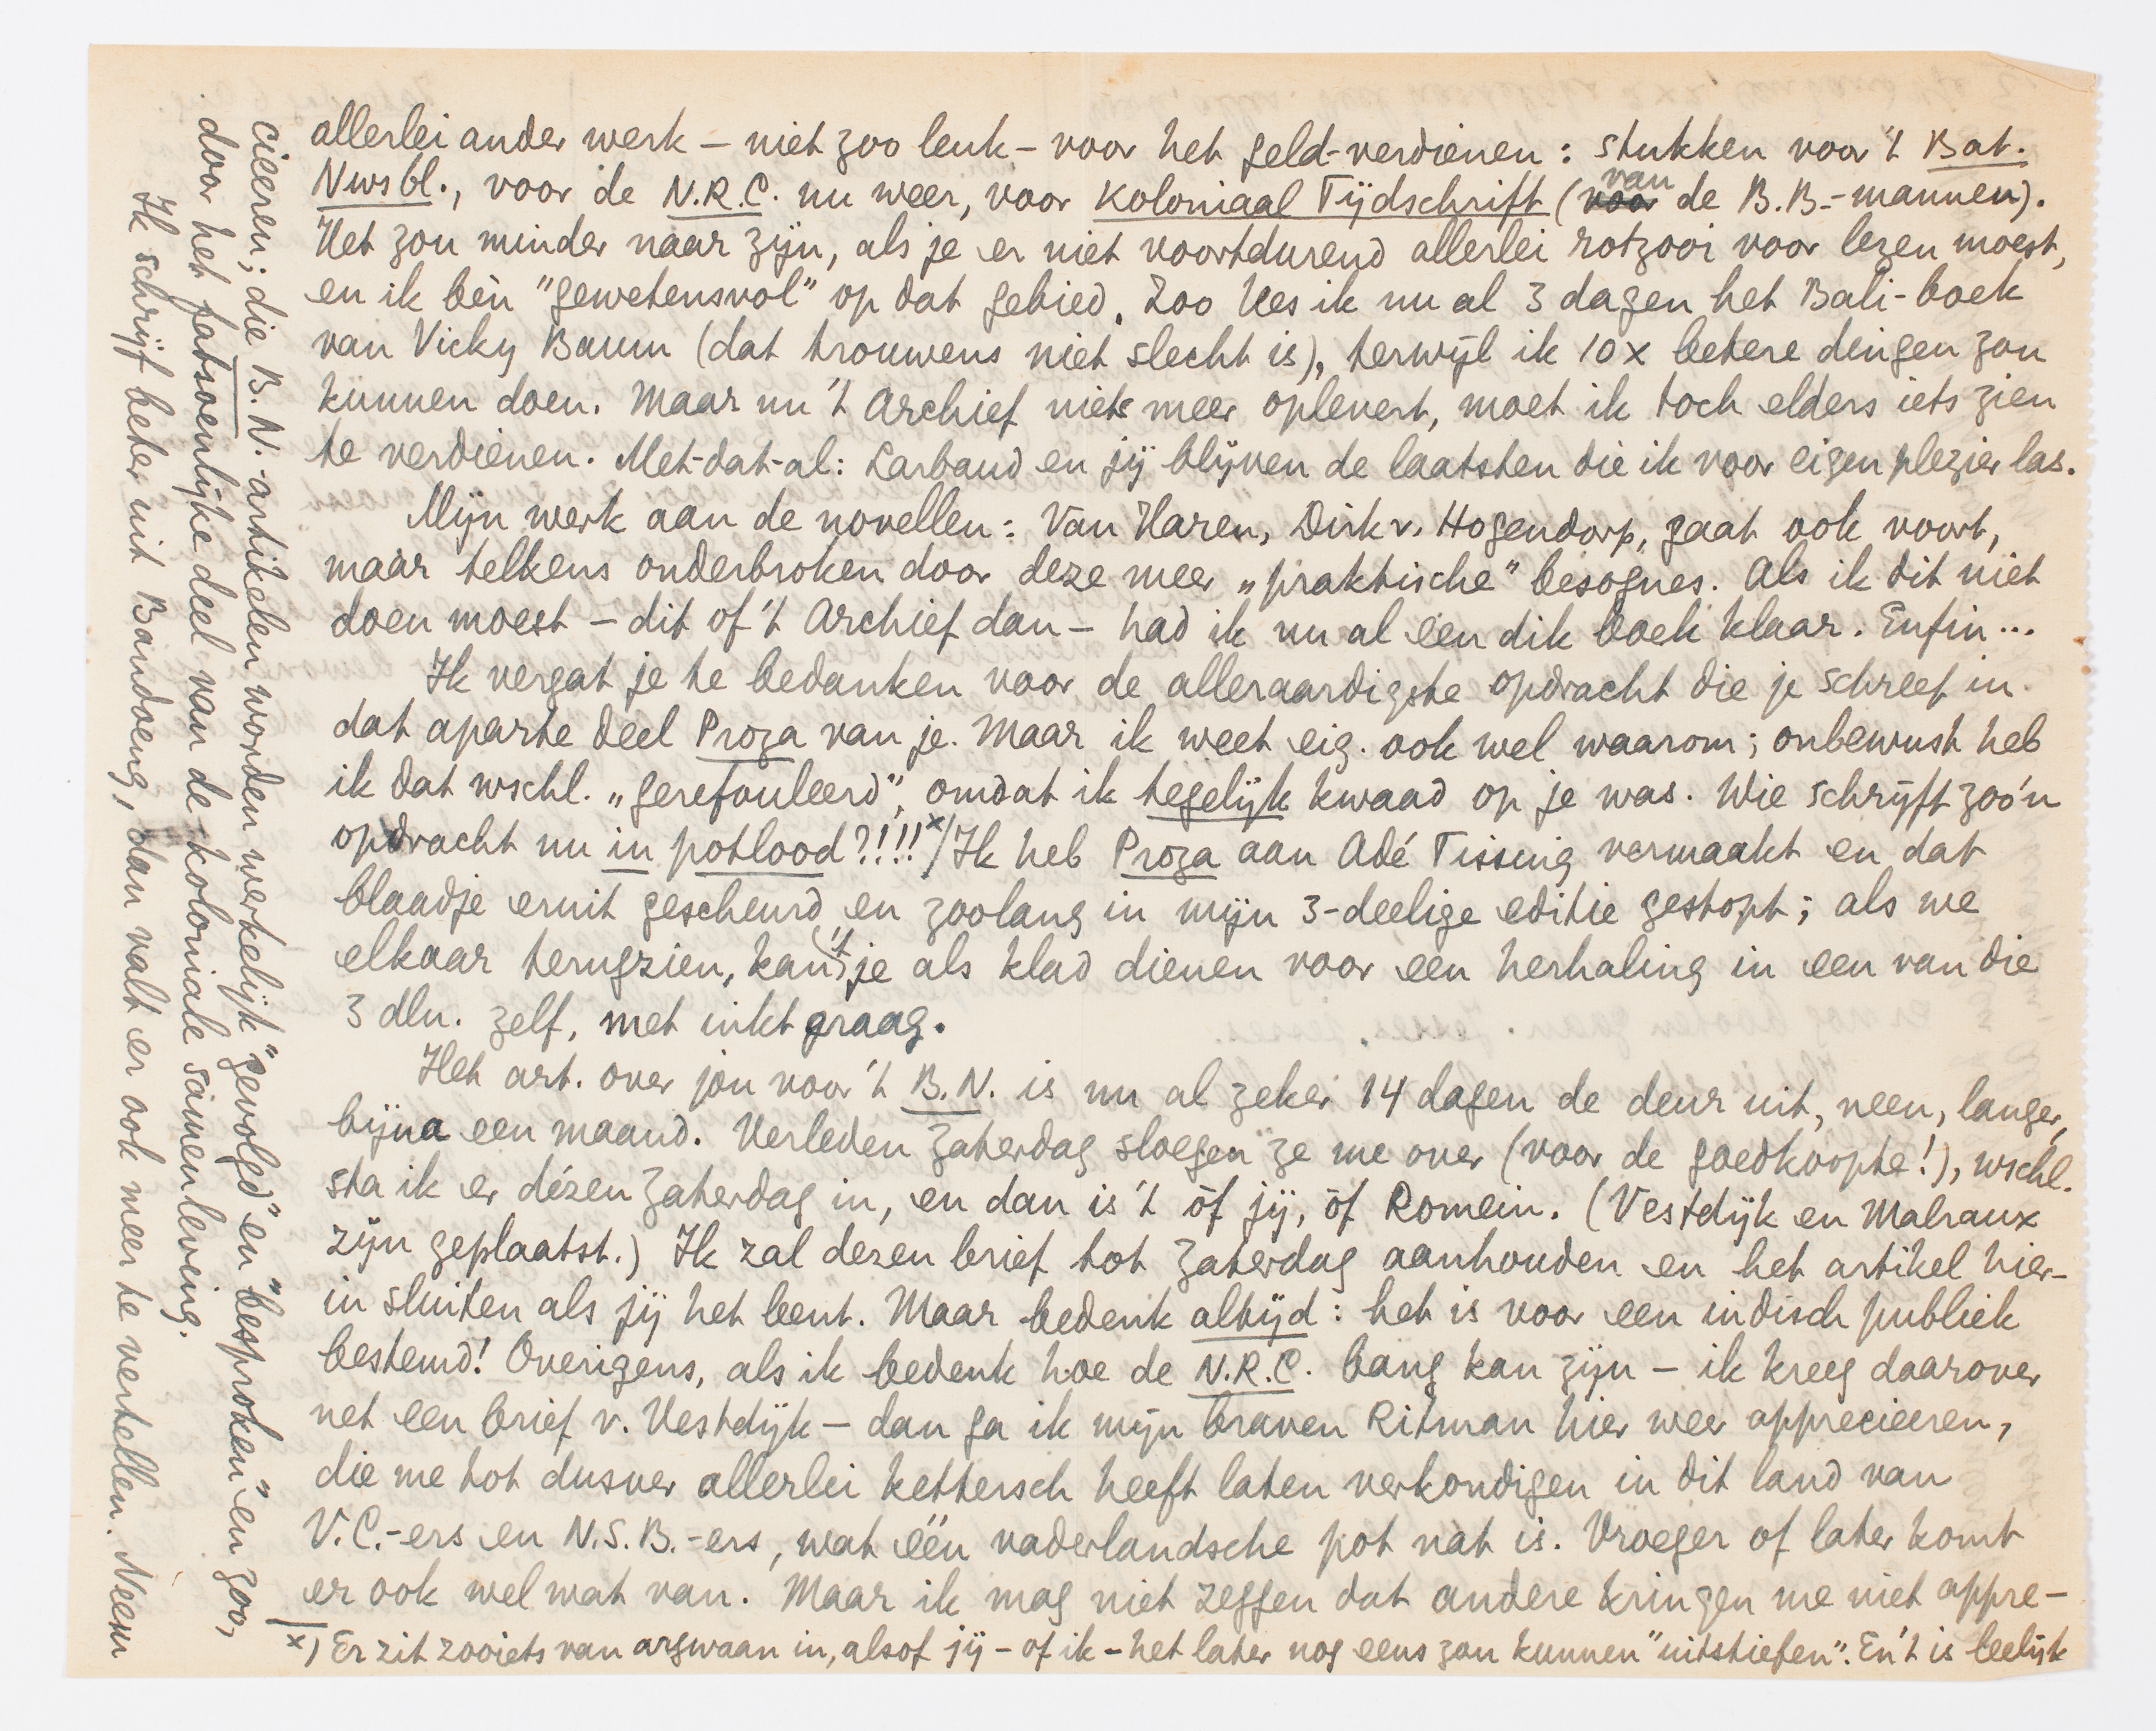 allerlei ander werk – niet zoo leuk – voor het geld-verdienen: stukken voor 't Bat.
Nwsbl., voor de N.R.C. nu weer, voor Koloniaal Tijdschrift (van de B.B.-mannen).
Het zou minder naar zijn, als je er niet voortdurend allerlei rotzooi voor lezen moest,
en ik bèn "gewetensvol" op dat gebied. Zoo lees ik nu al 3 dagen het Bali-boek
van Vicky Baum (dat trouwens niet slecht is), terwijl ik 10 x betere dingen zou
kunnen doen. Maar nu 't Archief niets meer oplevert, moet ik toch elders iets zien
te verdienen. Met-dat-al: Larbaud en jij blijven de laatsten die ik voor eigen plezier las.
Mijn werk aan de novellen: Van Haren, Dirk v. Hogendorp, gaat ook voort,
maar telkens onderbroken door deze meer „praktische" besognes. Als ik dit niet
doen moest – dit of 't Archief dan – had ik nu al een dik boek klaar. Enfin...
Ik vergat je te bedanken voor de alleraardigste opdracht die je schreef in
dat aparte deel Proza van je. Maar ik weet eig. ook wel waarom; onbewust heb
ik dat wschl. „gerefouleerd", omdat ik tegelijk kwaad op je was. Wie schrijft zoo'n
opdracht nu in potlood?!!!! x) Ik heb Proza aan Adé Tissing vermaakt en dat
blaadje eruit gescheurd en zoolang in mijn 3-deelige editie gestopt; als we
elkaar terugzien, kan 't je als klad dienen voor een herhaling in een van die
3 dln. zelf, met inkt graag.
Het art. over jou voor 't B.N. is nu al zeker 14 dagen de deur uit, neen, langer,
bijna een maand. Verleden Zaterdag sloegen ze me over (voor de goedkoopte!), wschl.
sta ik er dézen Zaterdag in, en dan is 't òf jij, òf Romein. (Vestdijk en Malraux
zijn geplaatst.) Ik zal dezen brief tot Zaterdag aanhouden en het artikel hier-
in sluiten als jij het bent. Maar bedenk altijd: het is voor een indisch publiek
bestemd! Overigens, als ik bedenk hoe de N.R.C. bang kan zijn – ik kreeg daarover
net een brief v. Vestdijk – dan ga ik mijn braven Ritman hier weer apprecieeren,
die me tot dusver allerlei kettersch heeft laten verkondigen in dit land van
V.C.-ers en N.S.B.-ers, wat één vaderlandsche pot nat is. Vroeger of later komt
er ook wel wat van. Maar ik mag niet zeggen dat andere kringen me niet appre-
x) Er zit zooiets van argwaan in, alsof jij – of ik – het later nog eens zou kunnen "uitstiefen". En 't is leelijk
cieeren; die B.N.-artikelen worden werkelijk "gevolgd" en "besproken" en zoo,
door het fatsoenlijke deel van de koloniale samenleving.
Ik schrijf beter uit Bandoeng, dan valt er ook meer te vertellen. Neem